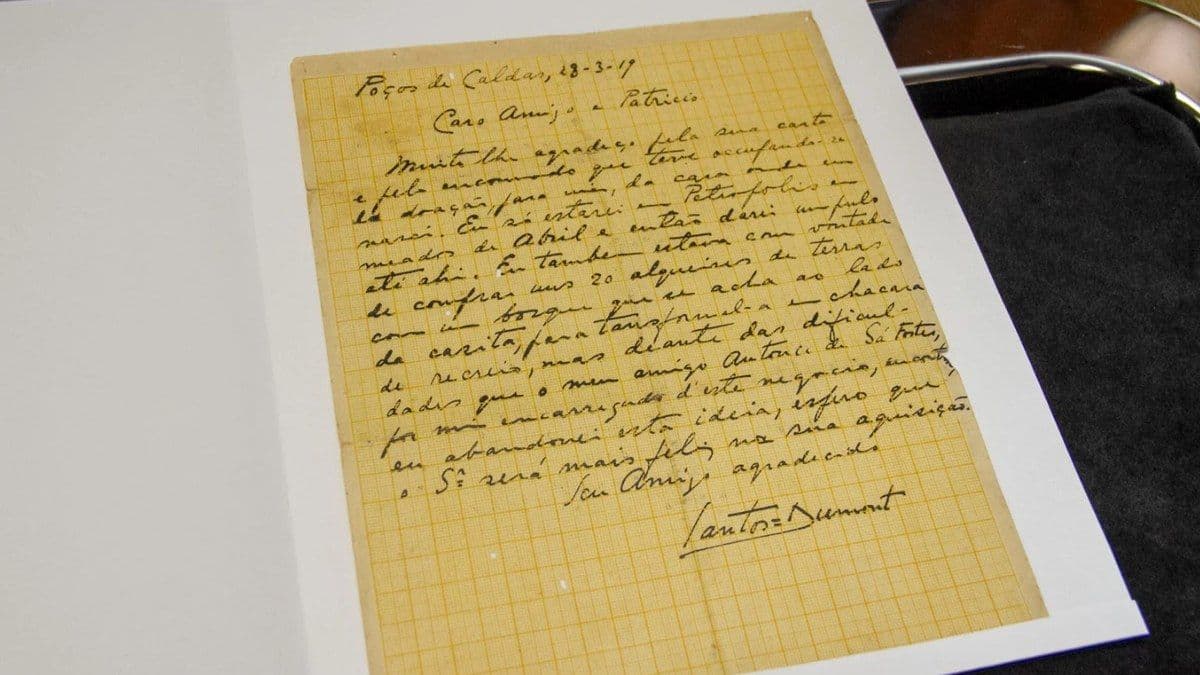 Poços de Caldas, 28-3-19
Caro Amigo e Patricio
Muito lhe agradeço pela sua carta
e pelo encommodo que teve occupando-se
da doação, para mim, da casa onde eu
nasci. Eu só estarei em Petropolis em
meados de Abril e então darei um pulo
até ahi. Eu tambem estava com vontade
de comprar uns 20 alqueires de terras
com um bosque que se acha ao lado
da casita, para transformal-a em chacara
de recreio, mas deante das dificul-
dades que o meu amigo Antonio de Sá Fortes,
por mim encarregado d'este negocio, encontrou,
eu abandonei esta ideia, espero que
o Sñr será mais feliz na sua aquisição.
Seu Amigo agradecido
Santos=Dumont